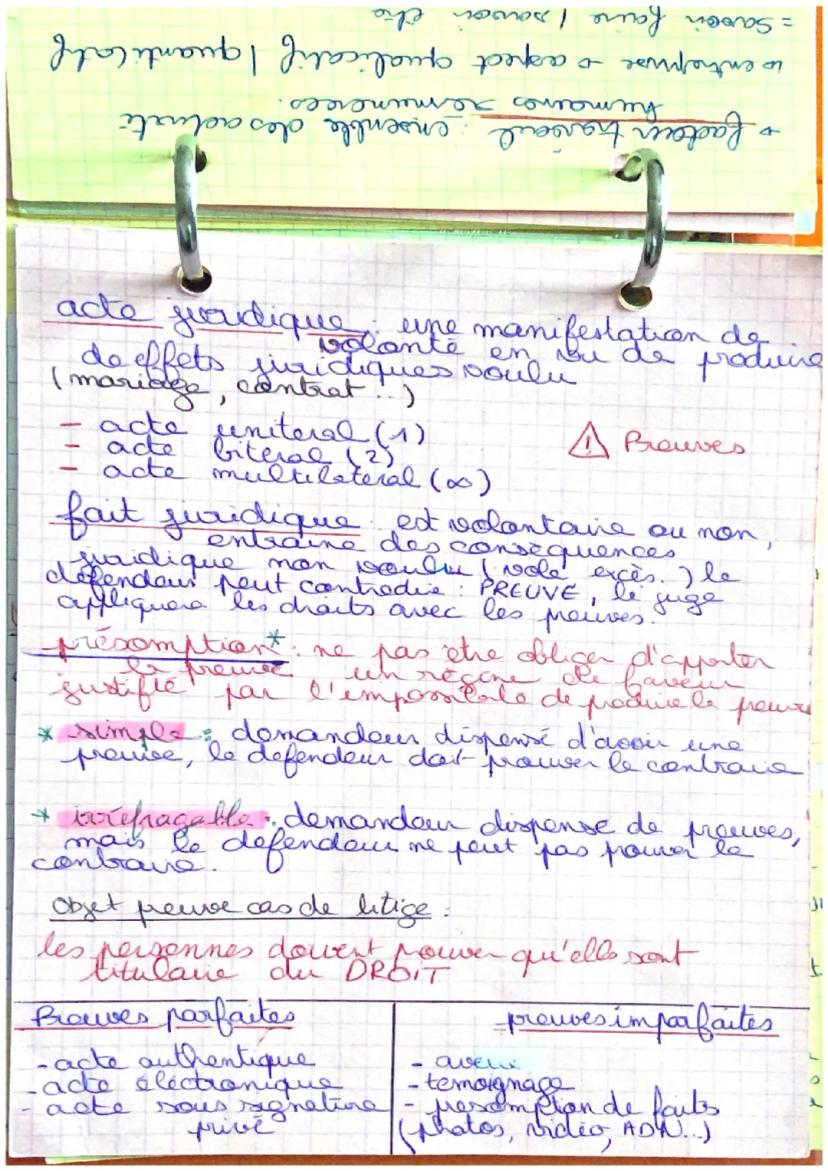 = savoir faire / savoir être
↳ entreprise → aspect qualicatif / quanticatif
humaines remunérées.
→ facteur travail : ensemble des activité
acte juridique : une manifestation de
volonté en vu de produire
de effets juridiques voulu
(mariage, contrat...)
- acte uniteral (1)
- acte biteral (2)
- acte multilateral (∞)
⚠ Preuves
fait juridique : est volontaire ou non,
entraine des consequences
juridique non voulu (vole excès..) le
défendeur peut contredire : PREUVE, le juge
appliquera les droits avec les preuves.
présomption* : ne pas être obliger d'apporter
la preuve un régime de faveur
justifié par l'impossible de produire la preuve
* simple : demandeur dispensé d'avoir une
preuve, le defendeur doit prouver le contraire
* irréfragable : demandeur dispense de preuves,
mais le defendeur ne peut pas prouver le
contraire.
Objet preuve cas de litige :
les personnes doivent prouver qu'elle sont
titulaire du DROIT
Preuves parfaites
- acte authentique
- acte électronique
- acte sous signature
privé
preuves imparfaites
- aveux
- temoignage
- presomption de faits
(photos, vidéo, ADN...)